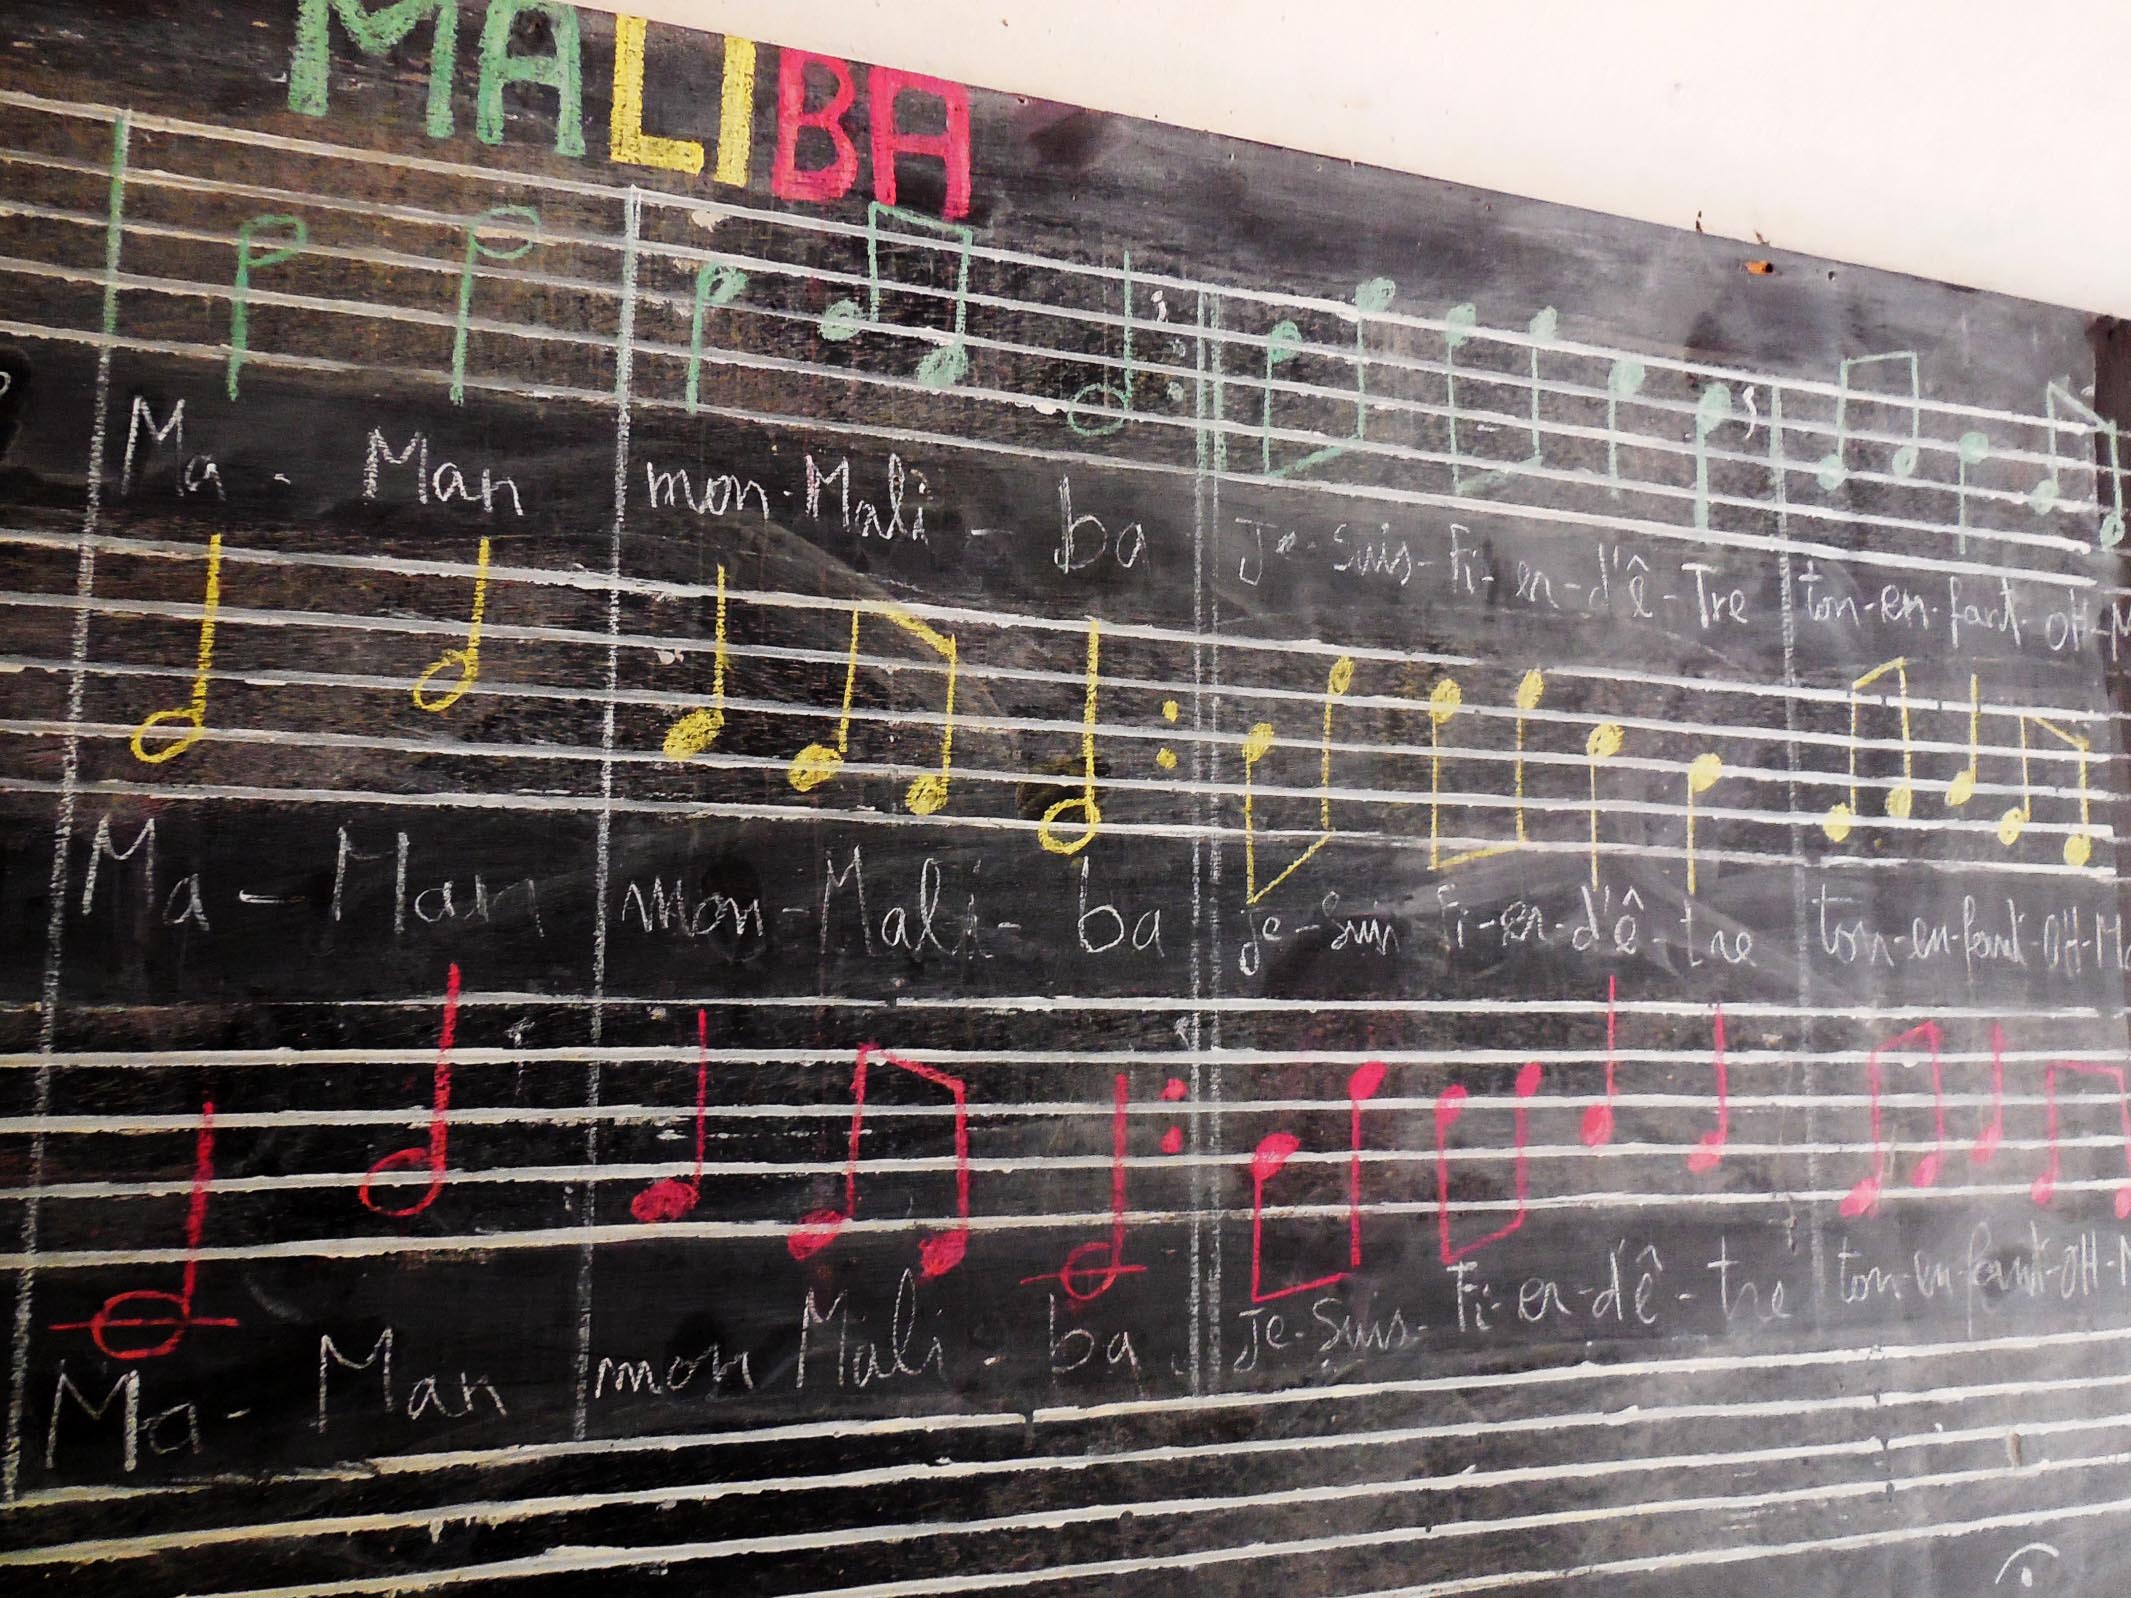 MALIBA
Ma - Man mon - Mali - ba Je - Suis - Fi - er - d'ê - Tre ton - en - fant - OH - M
Ma - Man mon - Mali - ba je - Suis Fi - er - d'ê - tre ton - en - fant - OH - Ma
Ma - Man mon Mali - ba Je - Suis - Fi - er - d'ê - tre ton - en - fant - OH - M